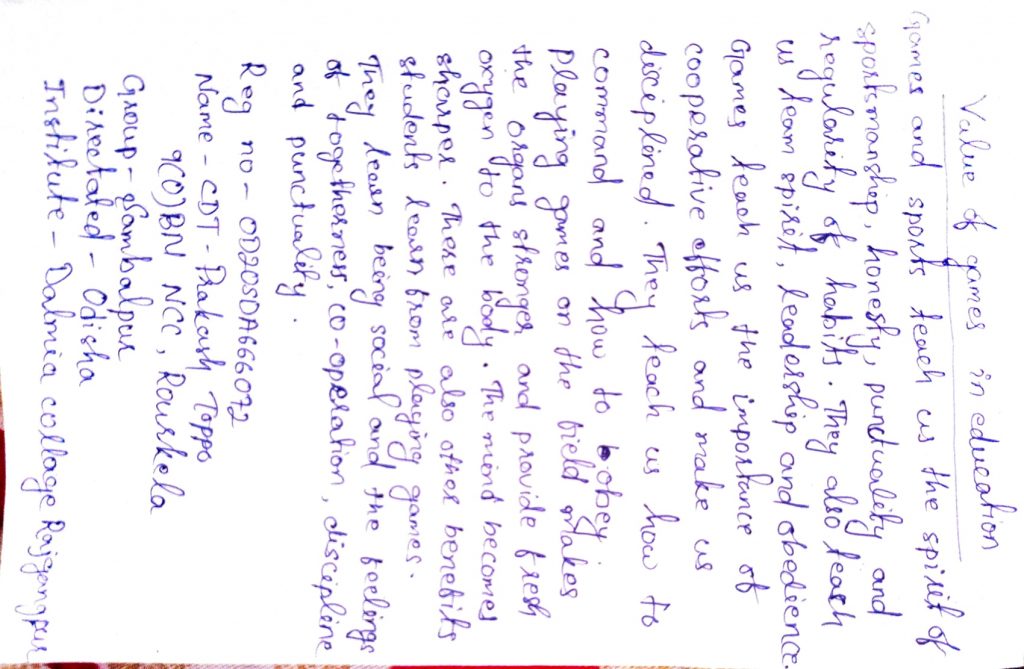 Value of games in education
Games and sports teach us the spirit of
sportsmanship, honesty, punctuality and
regularity of habits. They also teach
us team spirit, leadership and obedience.
Games teach us the importance of
cooperative efforts and make us
disciplined. They teach us how to
command and how to obey
Playing games on the field makes
the organs stronger and provide fresh
oxygen to the body. The mind becomes
sharper. There are also other benefits
students learn from playing games.
They learn being social and the feelings
of togetherness, co-operation, discipline
and punctuality.
Reg no - OD20SDA666072
Name - CDT - Prakash Toppo
9(O)BN NCC, Rourkela
Group - Sambalpur
Directed - Odisha
Institute - Dalmia collage Rajgangpur